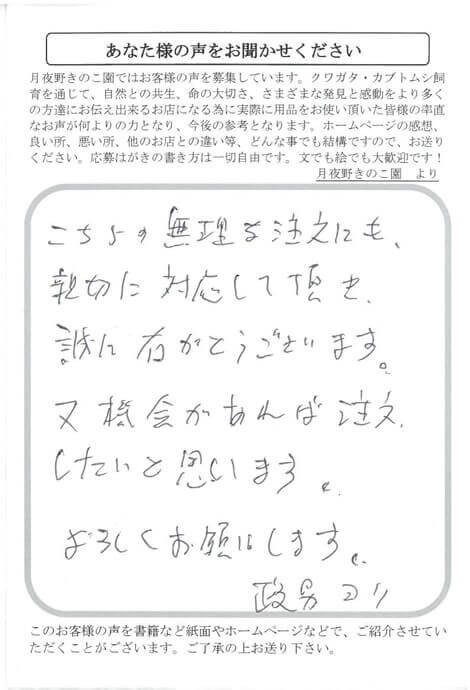 あなた様の声をお聞かせください
月夜野きのこ園ではお客様の声を募集しています。クワガタ・カブトムシ飼
育を通じて、自然との共生、命の大切さ、さまざまな発見と感動をより多く
の方達にお伝え出来るお店になる為に実際に用品をお使い頂いた皆様の率直
なお声が何よりの力となり、今後の参考となります。ホームページの感想、
良い所、悪い所、他のお店との違い等、どんな事でも結構ですので、お送り
ください。応募はがきの書き方は一切自由です。文でも絵でも大歓迎です！
月夜野きのこ園　より
こちらの無理な注文にも、
親切に対応して頂き、
誠に有がとうございます。
又機会があれば注文
したいと思います。
よろしくお願いします。
政男より
このお客様の声を書籍など紙面やホームページなどで、ご紹介させてい
ただくことがございます。ご了承の上お送り下さい。